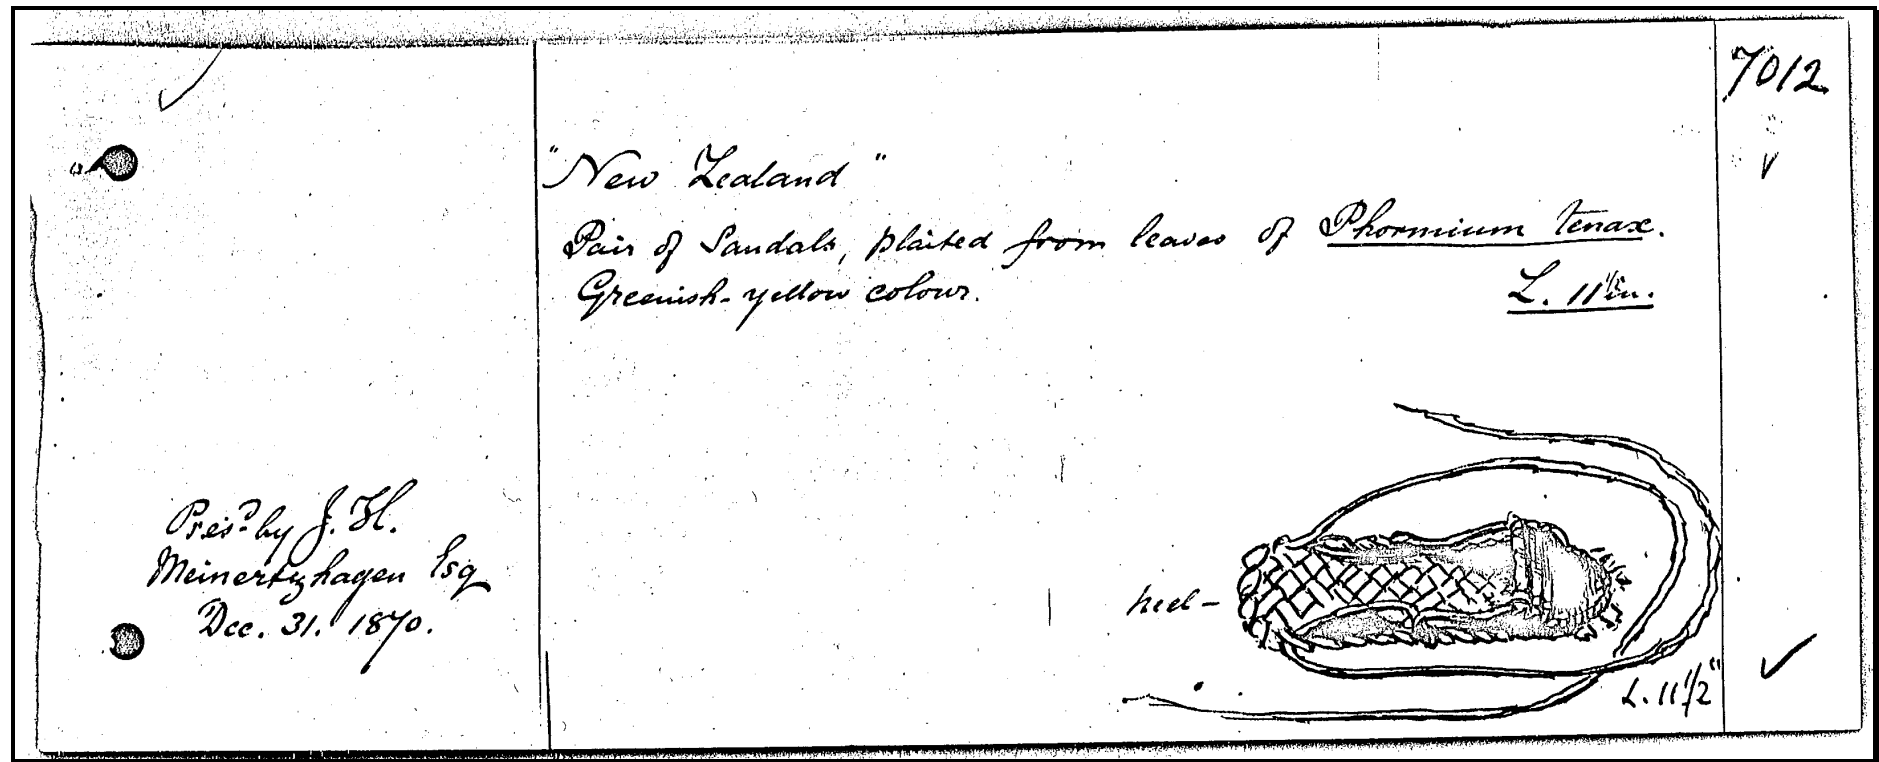 7012
"New Zealand"
Pair of Sandals, plaited from leaves of Phormium tenax.
Greenish-yellow colour.
L. 11½in.
Presd. by J. H.
Meinertzhagen Esq
Dec. 31. 1870.
heel -
L. 11 1/2"